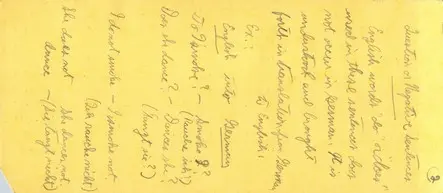 3
Question or Negative Sentences
English words "do" or "does"
used in these sentences does
not occur in German. It is
understood and brought
forth in translation from German
to English:
Ex.:
English into German
Do I smoke? – Smoke I?
(Rauche ich?)
Does she dance? – Dances she?
(Tanzt sie?)
I do not smoke – I smoke not
(Ich rauche nicht)
She does not dance – She dances not.
(Sie tanzt nicht)